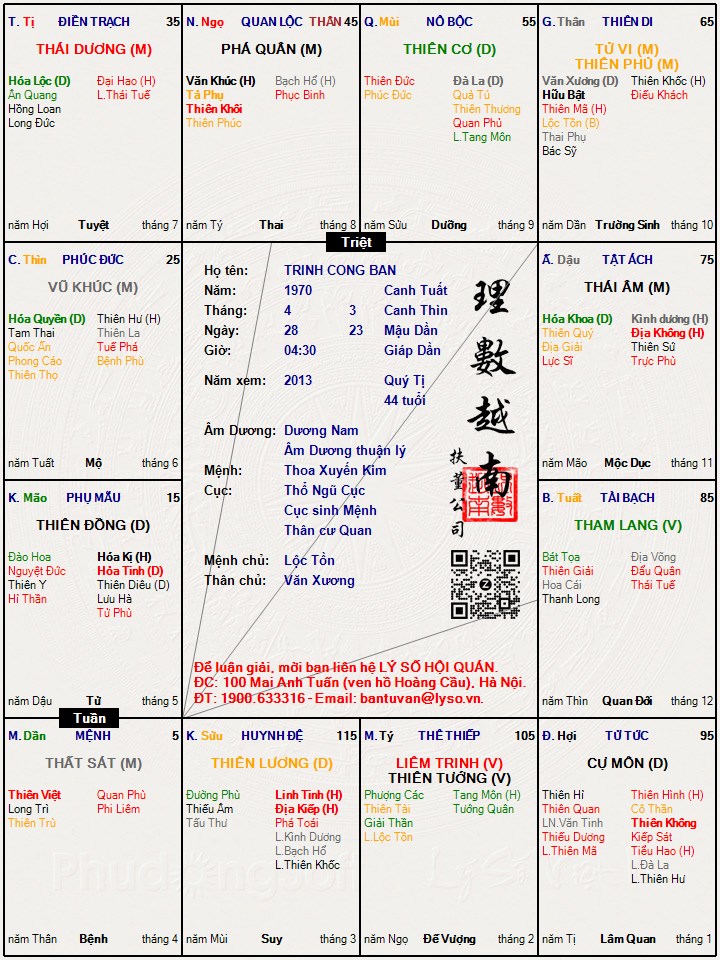 T. Tị ĐIỀN TRẠCH 35
THÁI DƯƠNG (M)
Hóa Lộc (D) Đại Hao (H)
Ân Quang L.Thái Tuế
Hồng Loan
Long Đức
năm Hợi Tuyệt tháng 7
N. Ngọ QUAN LỘC THÂN 45
PHÁ QUÂN (M)
Văn Khúc (H) Bạch Hổ (H)
Tả Phụ Phục Binh
Thiên Khôi
Thiên Phúc
năm Tý Thai tháng 8
Q. Mùi NÔ BỘC 55
THIÊN CƠ (D)
Thiên Đức Đà La (D)
Phúc Đức Quả Tú
Thiên Thương
Quan Phủ
L.Tang Môn
năm Sửu Dưỡng tháng 9
G. Thân THIÊN DI 65
TỬ VI (M)
THIÊN PHỦ (M)
Văn Xương (D) Thiên Khốc (H)
Hữu Bật Điếu Khách
Thiên Mã (H)
Lộc Tồn (B)
Thai Phụ
Bác Sỹ
năm Dần Trường Sinh tháng 10
Triệt
C. Thìn PHÚC ĐỨC 25
VŨ KHÚC (M)
Hóa Quyền (D) Thiên Hư (H)
Tam Thai Thiên La
Quốc Ấn Tuế Phá
Phong Cáo Bệnh Phù
Thiên Thọ
năm Tuất Mộ tháng 6
Họ tên: TRINH CONG BAN
Năm: 1970 Canh Tuất
Tháng: 4 3 Canh Thìn
Ngày: 28 23 Mậu Dần
Giờ: 04:30 Giáp Dần
Năm xem: 2013 Quý Tị
44 tuổi
Âm Dương: Dương Nam
Âm Dương thuận lý
Mệnh: Thoa Xuyến Kim
Cục: Thổ Ngũ Cục
Cục sinh Mệnh
Thân cư Quan
Mệnh chủ: Lộc Tồn
Thân chủ: Văn Xương
理數越南
扶董公司
Để luận giải, mời bạn liên hệ LÝ SỐ HỘI QUÁN.
ĐC: 100 Mai Anh Tuấn (ven hồ Hoàng Cầu), Hà Nội.
ĐT: 1900.633316 - Email: bantuvan@lyso.vn.
Ấ. Dậu TẬT ÁCH 75
THÁI ÂM (M)
Hóa Khoa (D) Kình dương (H)
Thiên Quý Địa Không (H)
Địa Giải Thiên Sứ
Lực Sĩ Trực Phù
năm Mão Mộc Dục tháng 11
K. Mão PHỤ MẪU 15
THIÊN ĐỒNG (D)
Đào Hoa Hóa Kị (H)
Nguyệt Đức Hỏa Tinh (D)
Thiên Y Thiên Diêu (D)
Hỉ Thần Lưu Hà
Tử Phù
năm Dậu Tử tháng 5
B. Tuất TÀI BẠCH 85
THAM LANG (V)
Bát Tọa Địa Võng
Thiên Giải Đẩu Quân
Hoa Cái Thái Tuế
Thanh Long
năm Thìn Quan Đới tháng 12
Tuần
M. Dần MỆNH 5
THẤT SÁT (M)
Thiên Việt Quan Phù
Long Trì Phi Liêm
Thiên Trù
năm Thân Bệnh tháng 4
K. Sửu HUYNH ĐỆ 115
THIÊN LƯƠNG (D)
Đường Phù Linh Tinh (H)
Thiếu Âm Địa Kiếp (H)
Tấu Thư Phá Toái
L.Kình Dương
L.Bạch Hổ
L.Thiên Khốc
năm Mùi Suy tháng 3
M. Tý THÊ THIẾP 105
LIÊM TRINH (V)
THIÊN TƯỚNG (V)
Phượng Các Tang Môn (H)
Thiên Tài Tướng Quân
Giải Thần
L.Lộc Tồn
năm Ngọ Đế Vượng tháng 2
Đ. Hợi TỬ TỨC 95
CỰ MÔN (D)
Thiên Hỉ Thiên Hình (H)
Thiên Quan Cô Thần
LN.Văn Tinh Thiên Không
Thiếu Dương Kiếp Sát
L.Thiên Mã Tiểu Hao (H)
L.Đà La
L.Thiên Hư
năm Tị Lâm Quan tháng 1